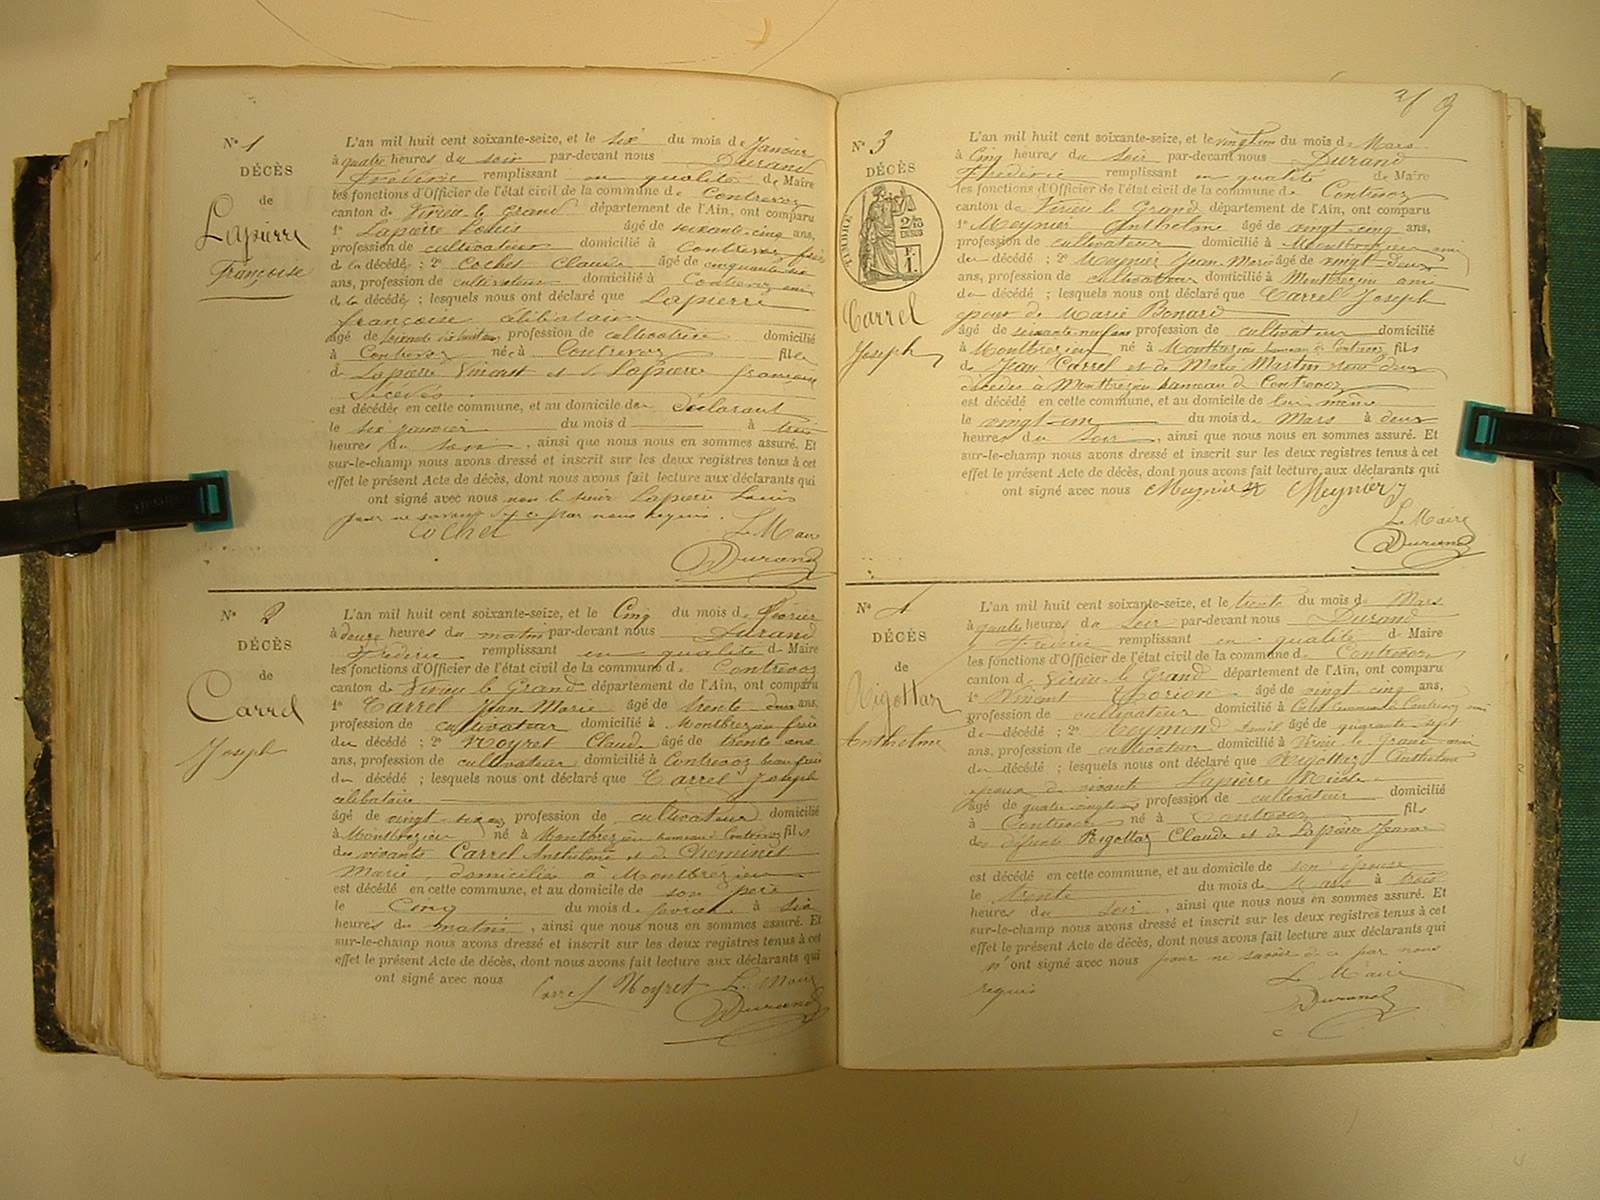 Nº 1
DÉCÈS
de
Lapierre
Françoise
L'an mil huit cent soixante-seize, et le six du mois de Janvier
à quatre heures du soir par-devant nous Durand
Frédéric remplissant en qualité de Maire
les fonctions d'Officier de l'état civil de la commune de Contrevoz
canton de Virieu le Grand département de l'Ain, ont comparu
1º Lapierre Louis âgé de soixante-cinq ans,
profession de cultivateur domicilié à Contrevoz frère
de la décédé ; 2º Cochet Claude âgé de cinquante six
ans, profession de cultivateur domicilié à Contrevoz ami
de la décédé ; lesquels nous ont déclaré que Lapierre
françoise célibataire
âgé de profession de cultivatrice domicilié
à Contrevoz née à Contrevoz fille
de Lapierre Vincent et de Lapierre françoise
décédés
est décédée en cette commune, et au domicile du déclarant
le six janvier du mois d à trois
heures du soir, ainsi que nous nous en sommes assuré. Et
sur-le-champ nous avons dressé et inscrit sur les deux registres tenus à cet
effet le présent Acte de décès, dont nous avons fait lecture aux déclarants qui
ont signé avec nous non le sieur Lapierre Louis
pour ne savoir de ce par nous requis.
Cochet Le Maire
Durand
Nº 2
DÉCÈS
de
Carrel
Joseph
L'an mil huit cent soixante-seize, et le Cinq du mois de février
à heures du matin par-devant nous Durand
Frédéric remplissant en qualité de Maire
les fonctions d'Officier de l'état civil de la commune de Contrevoz
canton de Virieu le Grand département de l'Ain, ont comparu
1º Carrel Jean Marie âgé de trente deux ans,
profession de cultivateur domicilié à Montbrezieu frère
du décédé ; 2º Noyret Claude âgé de trente
ans, profession de cultivateur domicilié à Contrevoz beau frère
du décédé ; lesquels nous ont déclaré que Carrel Joseph
célibataire
âgé de vingt profession de cultivateur domicilié
à Montbrezieu né à Montbrezieu hameau Contrevoz fils
des vivants Carrel Anthelme et de Cheminet
Marie, domiciliés à Montbrezieu
est décédé en cette commune, et au domicile de son père
le Cinq du mois de février à six
heures du matin, ainsi que nous nous en sommes assuré. Et
sur-le-champ nous avons dressé et inscrit sur les deux registres tenus à cet
effet le présent Acte de décès, dont nous avons fait lecture aux déclarants qui
ont signé avec nous
Carrel Noyret Le Maire
Durand
Nº 3
DÉCÈS
TIMBRE
2/10
EN SUS
F.
1.
Carrel
Joseph
L'an mil huit cent soixante-seize, et le vingt un du mois de Mars
à Cinq heures du Soir par-devant nous Durand
Frédéric remplissant en qualité de Maire
les fonctions d'Officier de l'état civil de la commune de Contrevoz
canton de Virieu le Grand département de l'Ain, ont comparu
1º Meynier Anthelme âgé de vingt cinq ans,
profession de cultivateur domicilié à Montbrezieu ami
du décédé ; 2º Meynier Jean Marie âgé de vingt-deux
ans, profession de cultivateur domicilié à Montbrezieu ami
du décédé ; lesquels nous ont déclaré que Carrel Joseph
époux de Marie Bonard
âgé de soixante neuf ans profession de cultivateur domicilié
à Montbrezieu né à Montbrezieu hameau de Contrevoz fils
de Jean Carrel et de Marie Martin tous deux
décédés à Montbrezieu hameau de Contrevoz
est décédé en cette commune, et au domicile de lui même
le vingt-un du mois de Mars à deux
heures du Soir, ainsi que nous nous en sommes assuré. Et
sur-le-champ nous avons dressé et inscrit sur les deux registres tenus à cet
effet le présent Acte de décès, dont nous avons fait lecture aux déclarants qui
ont signé avec nous Meynier Meynier
Le Maire
Durand
Nº 4
DÉCÈS
de
Rigottaz
Anthelme
L'an mil huit cent soixante-seize, et le trente du mois de Mars
à quatre heures du Soir par-devant nous Durand
Frédéric remplissant en qualité de Maire
les fonctions d'Officier de l'état civil de la commune de Contrevoz
canton de Virieu le Grand département de l'Ain, ont comparu
1º Vincent âgé de vingt cinq ans,
profession de cultivateur domicilié à Contrevoz ami
du décédé ; 2º Reymond âgé de quarante sept
ans, profession de cultivateur domicilié à Virieu le Grand ami
du décédé ; lesquels nous ont déclaré que Rigottaz Anthelme
époux de vivante Lapierre
âgé de quatre vingt profession de cultivateur domicilié
à Contrevoz né à Contrevoz fils
des défunts Rigottaz Claude et de Lapierre Jeanne
est décédé en cette commune, et au domicile de son épouse
le trente du mois de Mars à trois
heures du soir, ainsi que nous nous en sommes assuré. Et
sur-le-champ nous avons dressé et inscrit sur les deux registres tenus à cet
effet le présent Acte de décès, dont nous avons fait lecture aux déclarants qui
n'ont signé avec nous pour ne savoir de ce par nous
requis
Le Maire
Durand